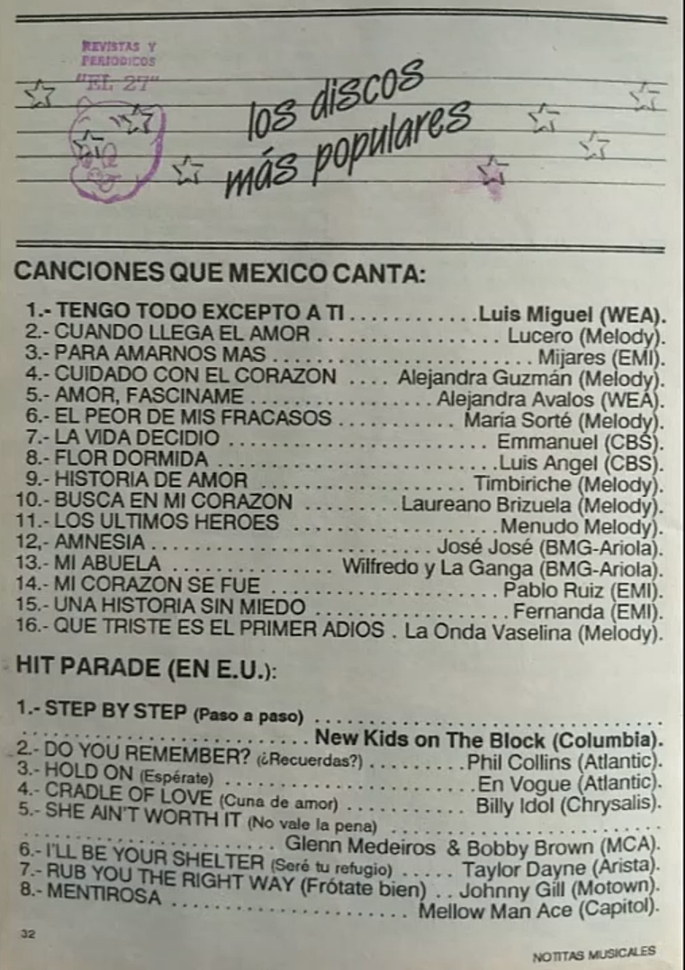 REVISTAS Y
PERIODICOS
"EL 27"
los discos
más populares
CANCIONES QUE MEXICO CANTA:
1.- TENGO TODO EXCEPTO A TI ............Luis Miguel (WEA).
2.- CUANDO LLEGA EL AMOR ................. Lucero (Melody).
3.- PARA AMARNOS MAS ........................ Mijares (EMI).
4.- CUIDADO CON EL CORAZON .... Alejandra Guzmán (Melody).
5.- AMOR, FASCINAME ................. Alejandra Avalos (WEA).
6.- EL PEOR DE MIS FRACASOS ........... María Sorté (Melody).
7.- LA VIDA DECIDIO ........................ Emmanuel (CBS).
8.- FLOR DORMIDA .........................Luis Angel (CBS).
9.- HISTORIA DE AMOR .................... Timbiriche (Melody).
10.- BUSCA EN MI CORAZON ........Laureano Brizuela (Melody).
11.- LOS ULTIMOS HEROES ................. Menudo Melody).
12,- AMNESIA ....................... José José (BMG-Ariola).
13.- MI ABUELA .............. Wilfredo y La Ganga (BMG-Ariola).
14.- MI CORAZON SE FUE .................... Pablo Ruiz (EMI).
15.- UNA HISTORIA SIN MIEDO ................. Fernanda (EMI).
16.- QUE TRISTE ES EL PRIMER ADIOS . La Onda Vaselina (Melody).
HIT PARADE (EN E.U.):
1.- STEP BY STEP (Paso a paso) ..............................
......................... New Kids on The Block (Columbia).
2.- DO YOU REMEMBER? (¿Recuerdas?) ......... Phil Collins (Atlantic).
3.- HOLD ON (Espérate) .......................En Vogue (Atlantic).
4.- CRADLE OF LOVE (Cuna de amor) ........... Billy Idol (Chrysalis).
5.- SHE AIN'T WORTH IT (No vale la pena) .........................
...................... Glenn Medeiros & Bobby Brown (MCA).
6.- I'LL BE YOUR SHELTER (Seré tu refugio) ..... Taylor Dayne (Arista).
7.- RUB YOU THE RIGHT WAY (Frótate bien) .. Johnny Gill (Motown).
8.- MENTIROSA ..................... Mellow Man Ace (Capitol).
32
NOTITAS MUSICALES